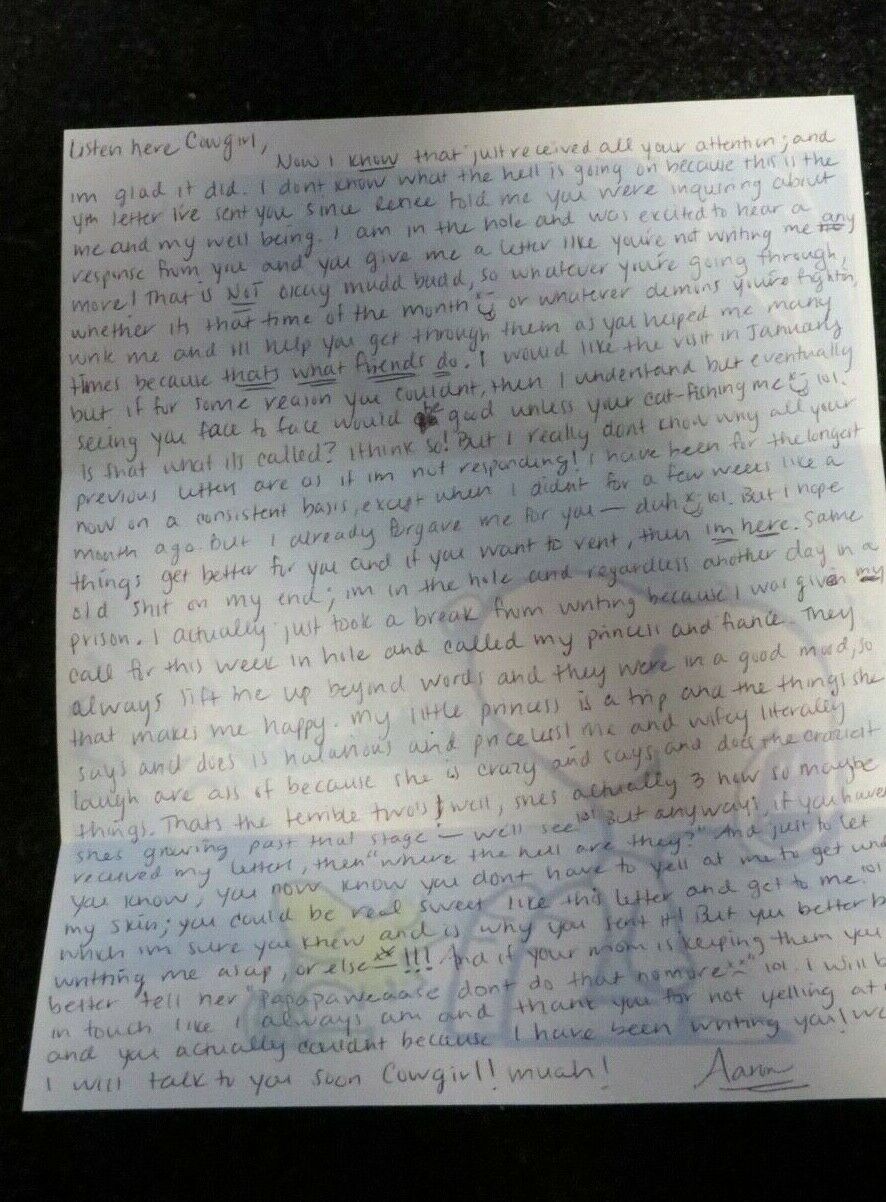 Listen here Cowgirl,
Now I know that just received all your attention; and
im glad it did. I dont know what the hell is going on because this is the
4th letter I've sent you since Renee told me you were inquiring about
me and my well being. I am in the hole and was excited to hear a
response from you and you give me a letter like you're not writing me any
more! That is NOT okay mudd budd, so whatever you're going through,
whether its that time of the month or whatever demons you're fightin,
write me and ill help you get through them as you helped me many
times because thats what friends do. I would like the visit in January
but if for some reason you couldnt, then I understand but eventually
seeing you face to face would be good unless your cat-fishing me lol.
Is that what its called? I think so! But I really dont know why all your
previous letters are as if im not responding! I have been for the longest
now on a consistent basis, except when I didnt for a few weeks like a
month ago. But I already forgave me for you — duh lol. But I hope
things get better for you and if you want to vent, then im here. Same
old shit on my end; im in the hole and regardless another day in a
prison. I actually just took a break from writing because I was given my
call for this week in hole and called my princess and fiance. They
always lift me up beyond words and they were in a good mood, so
that makes me happy. My little princess is a trip and the things she
says and does is halarious and priceless! Me and wifey literally
laugh are ass of because she is crazy and says and does the craziest
things. Thats the terrible two's! well, shes actually 3 now so maybe
shes growing past that stage — we'll see lol But anyways, if you haven
received my letters, then "where the hell are they?" And just to let
you know, you now know you dont have to yell at me to get und
my skin; you could be real sweet like this letter and get to me lol
which im sure you knew and is why you sent it! But you better b
writting me asap, or else !!! And if your mom is keeping them you
better tell her "papapaweaase dont do that nomore" lol. I will b
in touch like I always am and thank you for not yelling at
and you actually couldnt because I have been writing you! We
I will talk to you soon Cowgirl! muah!
Aaron